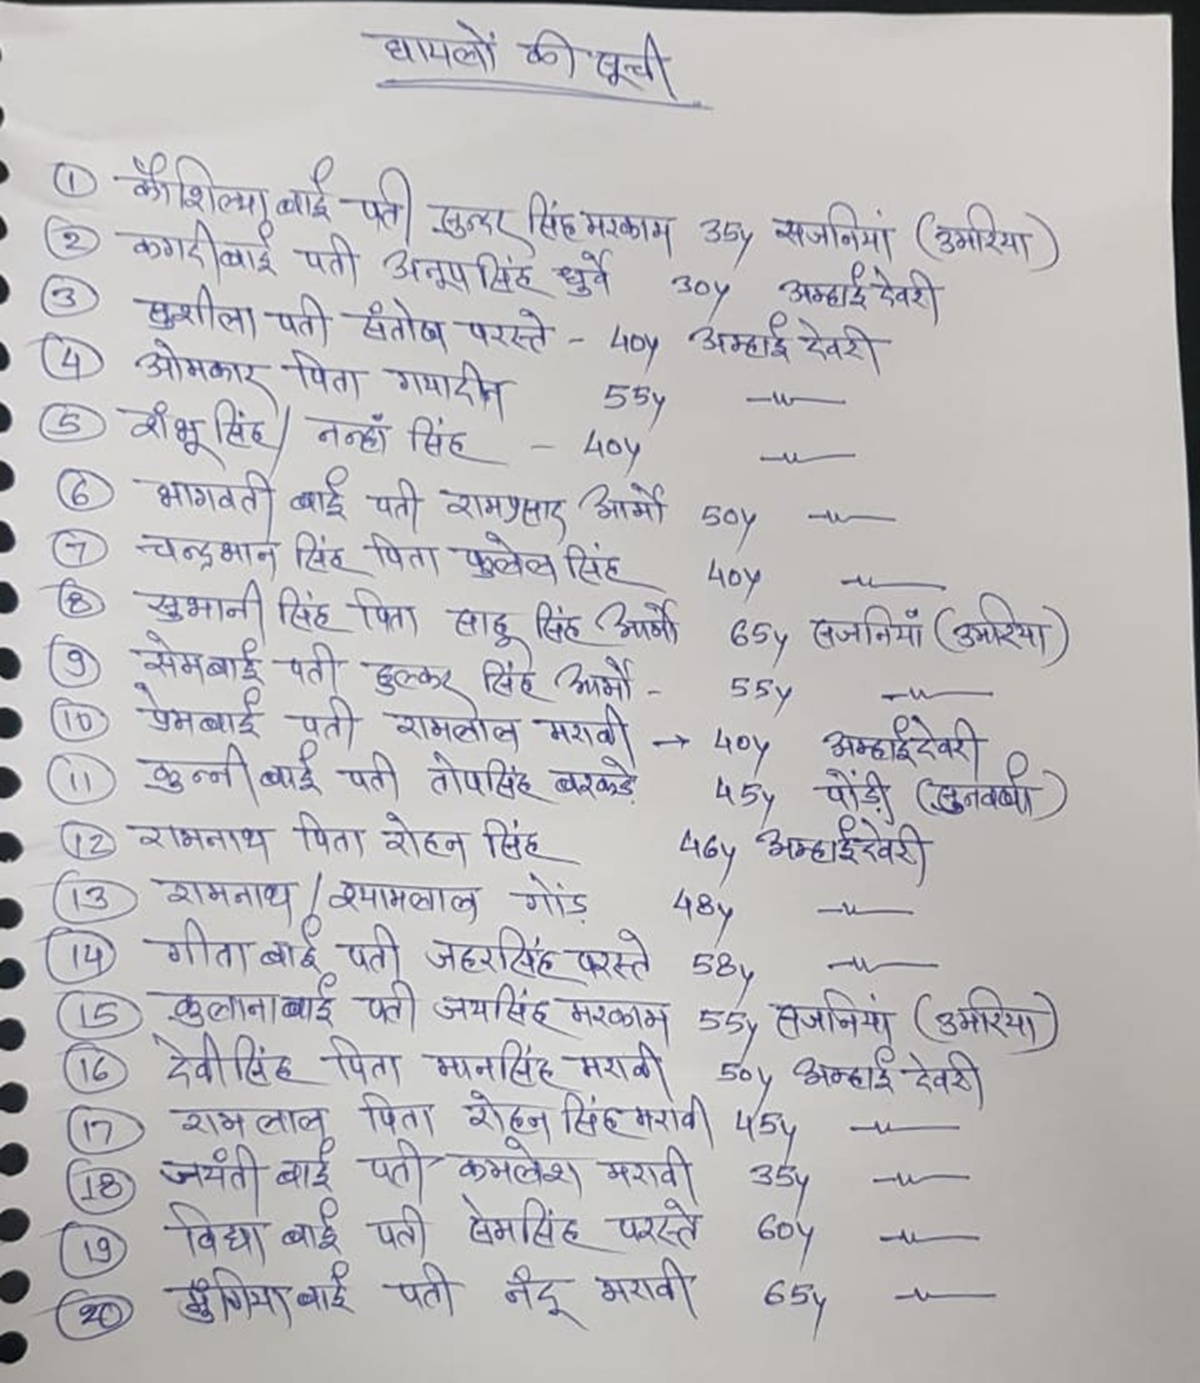 घायलों की सूची
① कौशिल्या बाई पती सुन्दर सिंह मरकाम 35y सजनियां (उमरिया)
② कगदीबाई पती अनूपसिंह धुर्वे 30y अम्हाई देवरी
③ सुशीला पती संतोष परस्ते - 40y अम्हाई देवरी
④ ओमकार पिता गयादीन 55y —॥—
⑤ शंभू सिंह / नन्हाँ सिंह - 40y —॥—
⑥ भागवती बाई पती रामप्रसाद आर्मो 50y —॥—
⑦ चन्द्रभान सिंह पिता फुलेल सिंह 40y —॥—
⑧ सुभानी सिंह पिता साहू सिंह आर्मो 65y सजनियाँ (उमरिया)
⑨ सेमबाई पती हुल्कर सिंह आर्मो - 55y —॥—
⑩ प्रेमबाई पती रामलाल मरावी → 40y अम्हाईदेवरी
⑪ कुन्नी बाई पती तोपसिंह बरकड़े 45y पोंड़ी (सुनवर्षा)
⑫ रामनाथ पिता रोहन सिंह 46y अम्हाई देवरी
⑬ रामनाथ / श्यामलाल गोंड़ 48y —॥—
⑭ गीता बाई पती जहरसिंह परस्ते 58y —॥—
⑮ कुलानाबाई पती जयसिंह मरकाम 55y सजनियां (उमरिया)
⑯ देवीसिंह पिता मानसिंह मरावी 50y अम्हाई देवरी
⑰ रामलाल पिता रोहन सिंह मरावी 45y —॥—
⑱ जयंती बाई पती कमलेश मरावी 35y —॥—
⑲ विद्या बाई पती प्रेमसिंह परस्ते 60y —॥—
⑳ मुंगिया बाई पती नंदू मरावी 65y —॥—